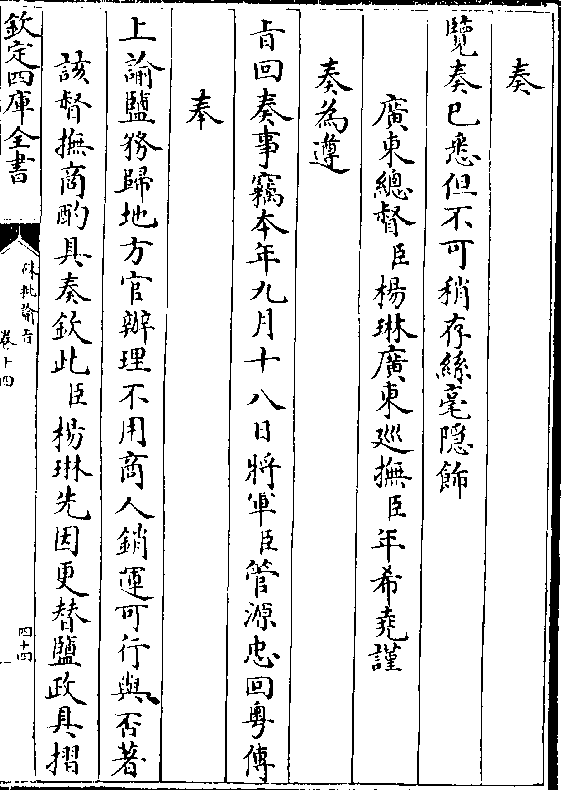 奏
覽奏已悉但不可稍存絲毫隠飾
廣東總督臣楊琳廣東廵撫臣年希堯謹
奏為遵
㫖回奏事竊本年九月十八日將軍臣管源忠回粤傳
奉
上諭鹽務歸地方官辦理不用商人銷運可行與否著
該督撫商酌具奏欽此臣楊琳先因更替鹽政具摺
欽定四庫全書
硃批諭旨
卷十四
四十四